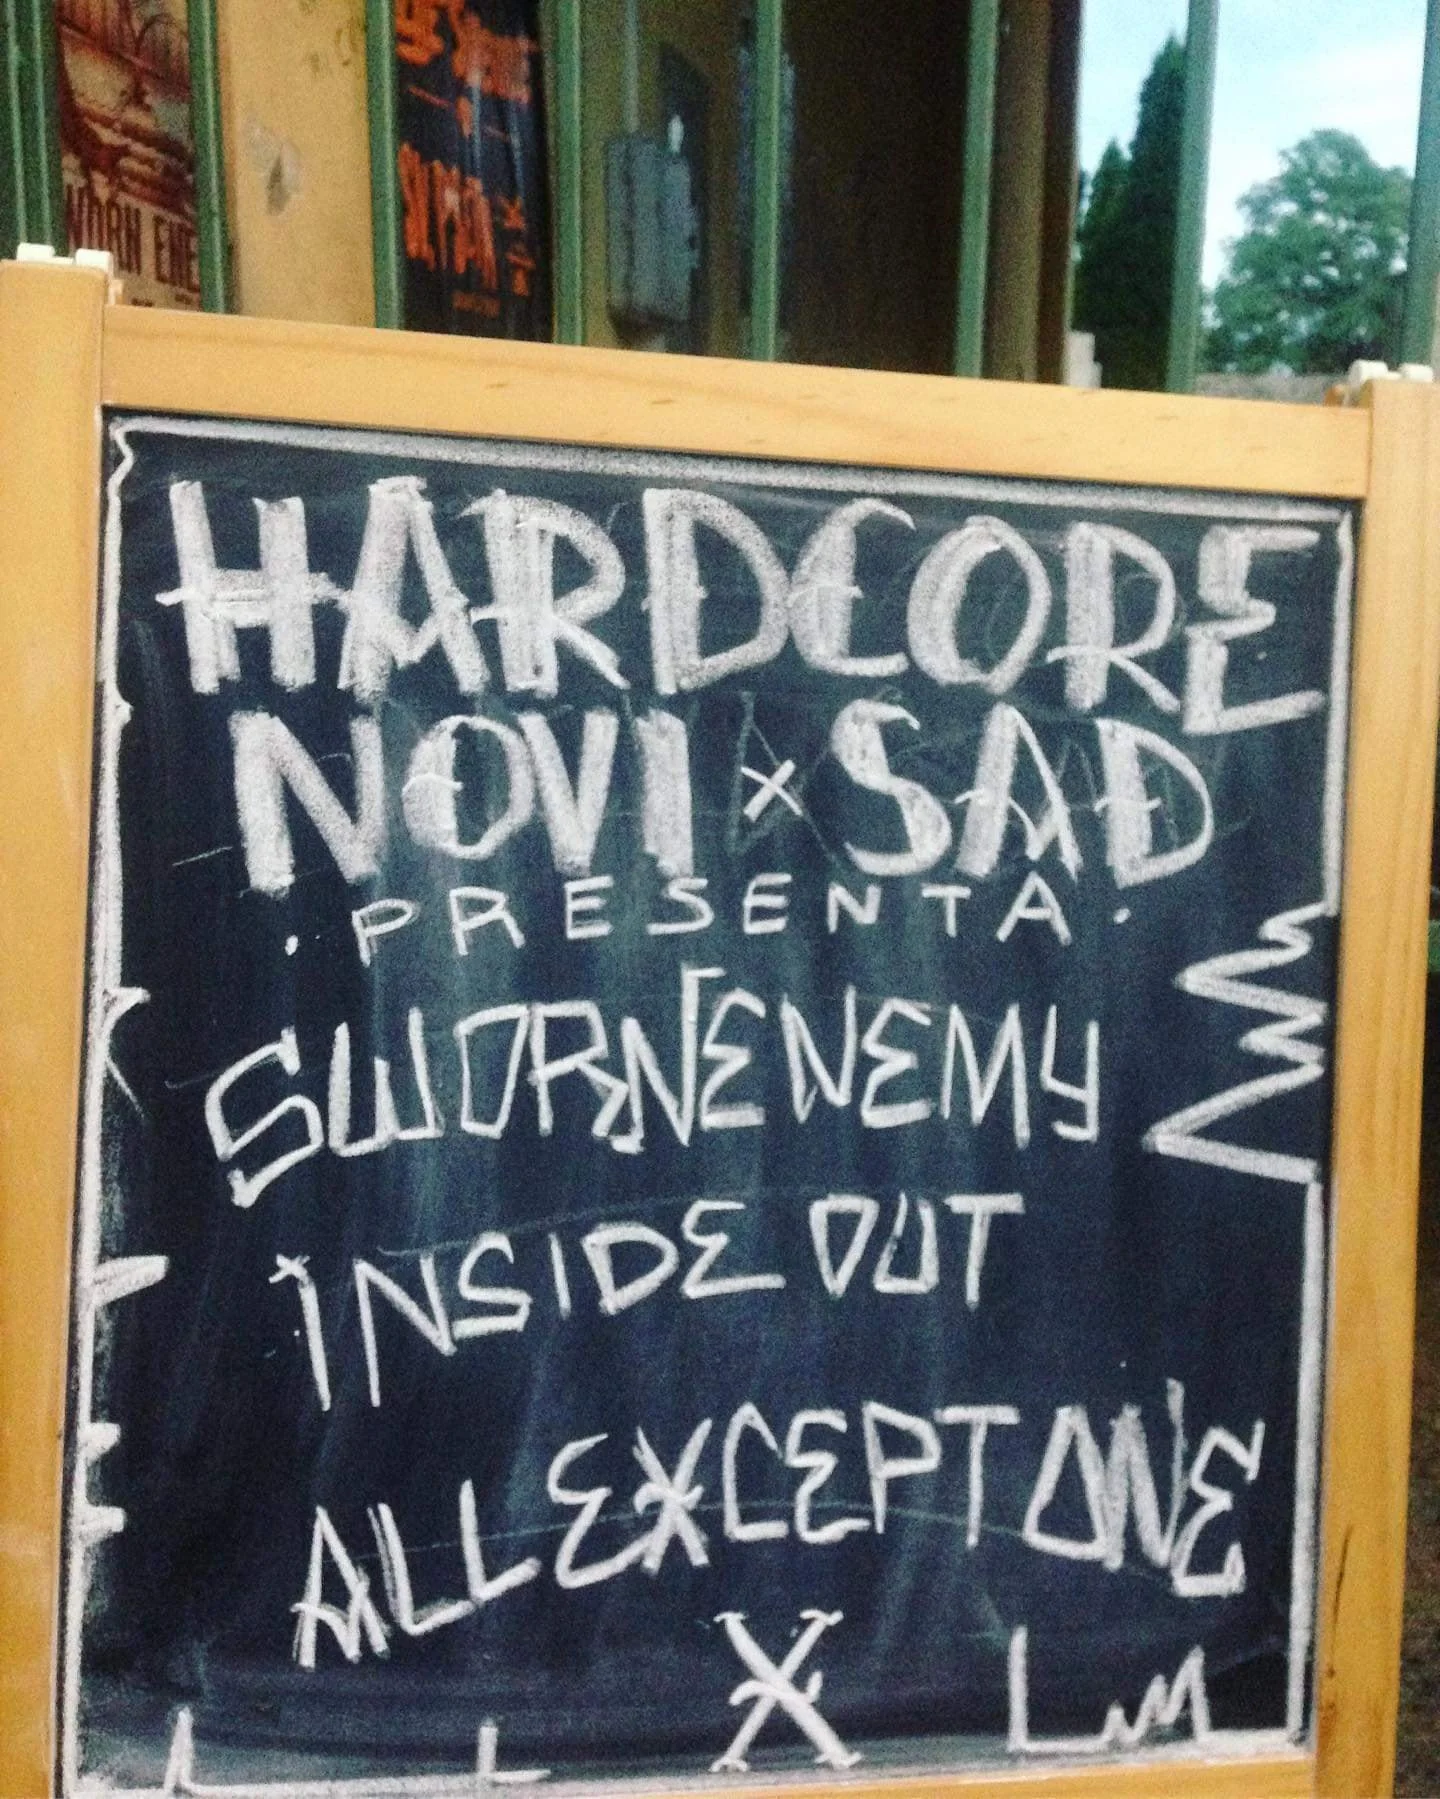 WORN ENE
HARDCORE
NOVI x SAD
· PRESENTA ·
SWORNENEMY
INSIDE OUT
ALL EXCEPT ONE
X